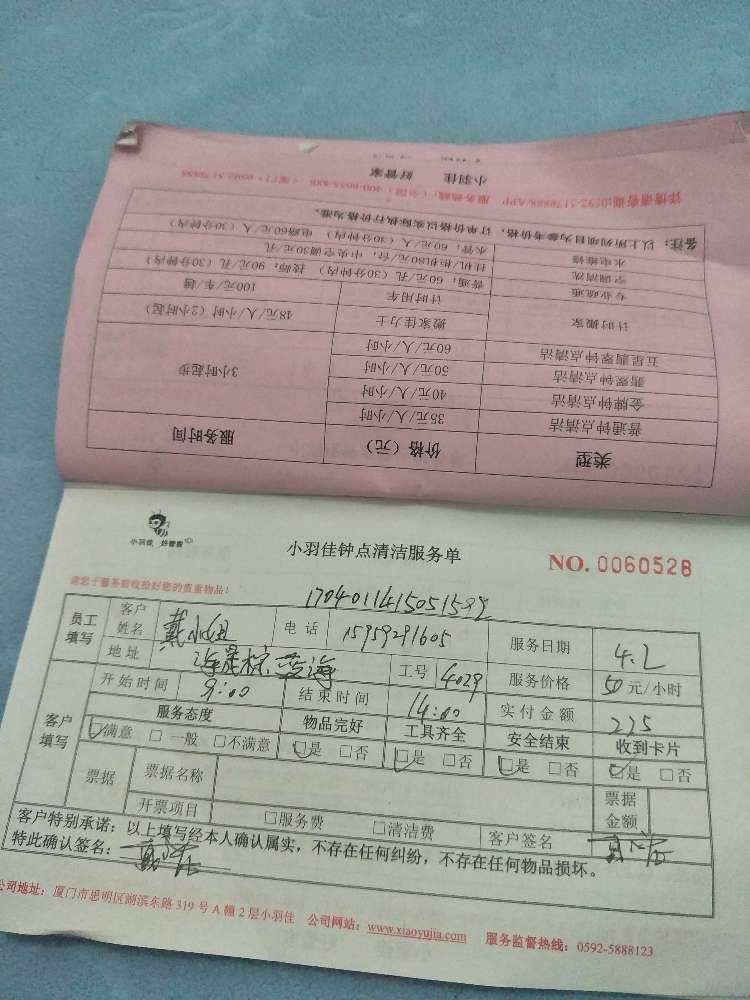 小羽佳 好管家
服务热线:(全国)400-8055-888 (厦门)0592-5178888
备注:以上所列项目为参考价格,订单价格以实际执行价格为准。
水电维修 水管:60元/人(30分钟内) 电路60元/人(30分钟内)
空调清洗 挂机/柜机80元/台,中央空调30元/孔
专业疏通 普通:60元/孔(30分钟内) 技师:90元/孔(30分钟内)
计时搬家 计时用车 100元/车/趟
搬家佳力士 48元/人/小时(2小时起)
五星翡翠钟点清洁 60元/人/小时
翡翠钟点清洁 50元/人/小时 3小时起步
金牌钟点清洁 40元/人/小时
普通钟点清洁 35元/人/小时
类型 价格(元) 服务时间
小羽佳 好管家
小羽佳钟点清洁服务单 NO. 0060528
请您于服务前收捡好您的贵重物品!
员工填写 客户姓名 戴小姐 电话 15959291605 服务日期 4.2
地址 海晟棕蓝海 工号 4029 服务价格 50元/小时
客户填写 开始时间 9:00 结束时间 14:00 实付金额 225
服务态度 物品完好 工具齐全 安全结束 收到卡片
☑满意 □一般 □不满意 ☑是 □否 ☑是 □否 ☑是 □否 ☑是 □否
票据 票据名称 票据金额
开票项目 □服务费 □清洁费 客户签名
客户特别承诺:以上填写经本人确认属实,不存在任何纠纷,不存在任何物品损坏。
特此确认签名:
公司地址:厦门市思明区湖滨东路319号A幢2层小羽佳 公司网站:www.xiaoyujia.com 服务监督热线:0592-5888123